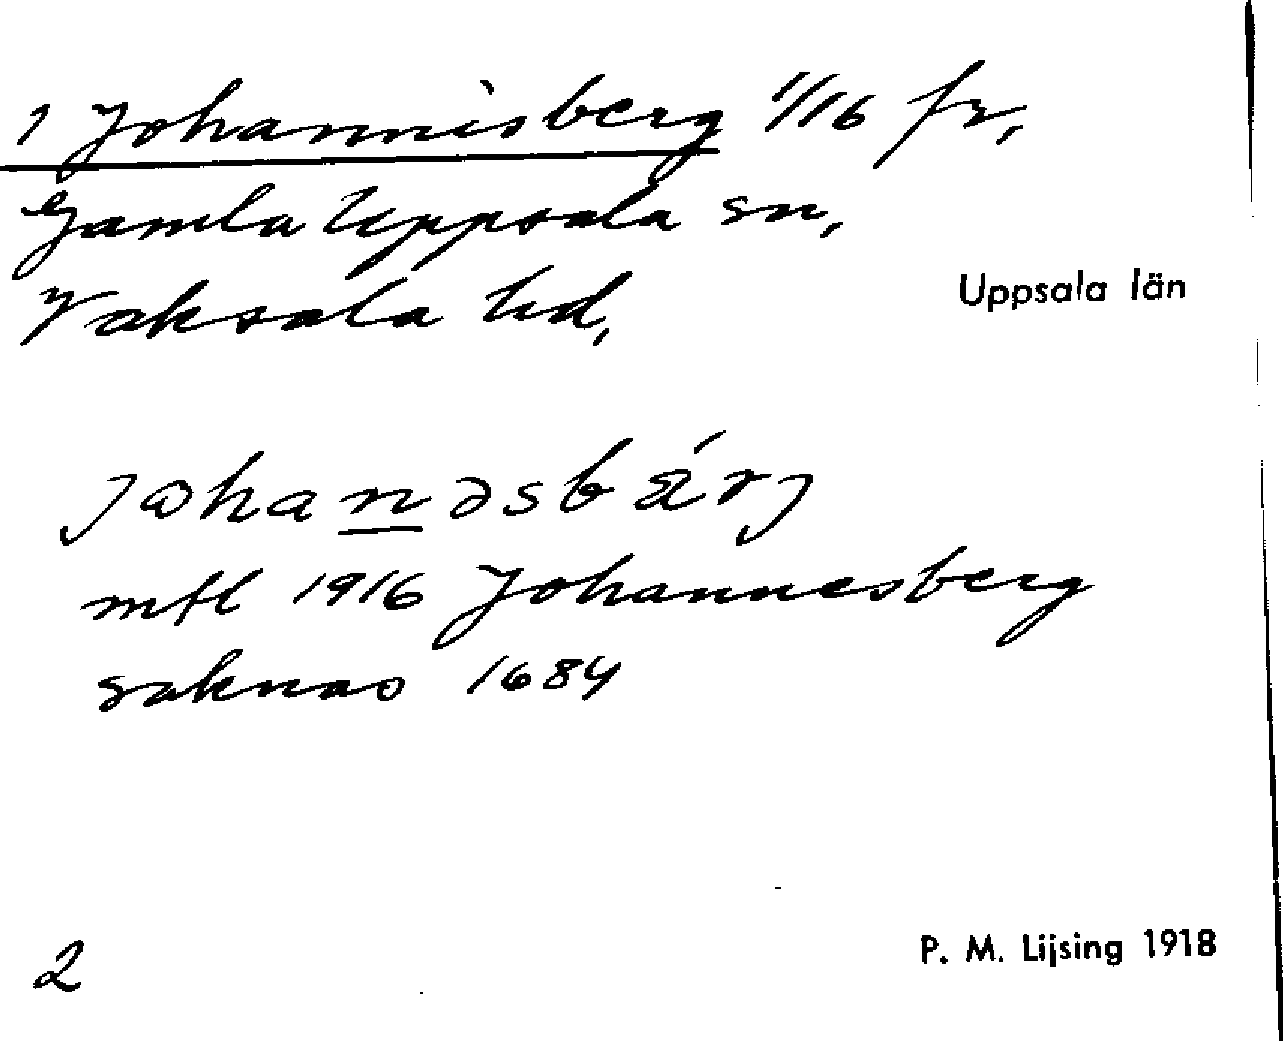 1 Johannisberg 1/16 fr,
Gamla Uppsala sn,
Vaksala hd,
Uppsala län
jωhanəsbǽrj
mtl 1916 Johannesberg
saknas 1684
2
P. M. Lijsing 1918